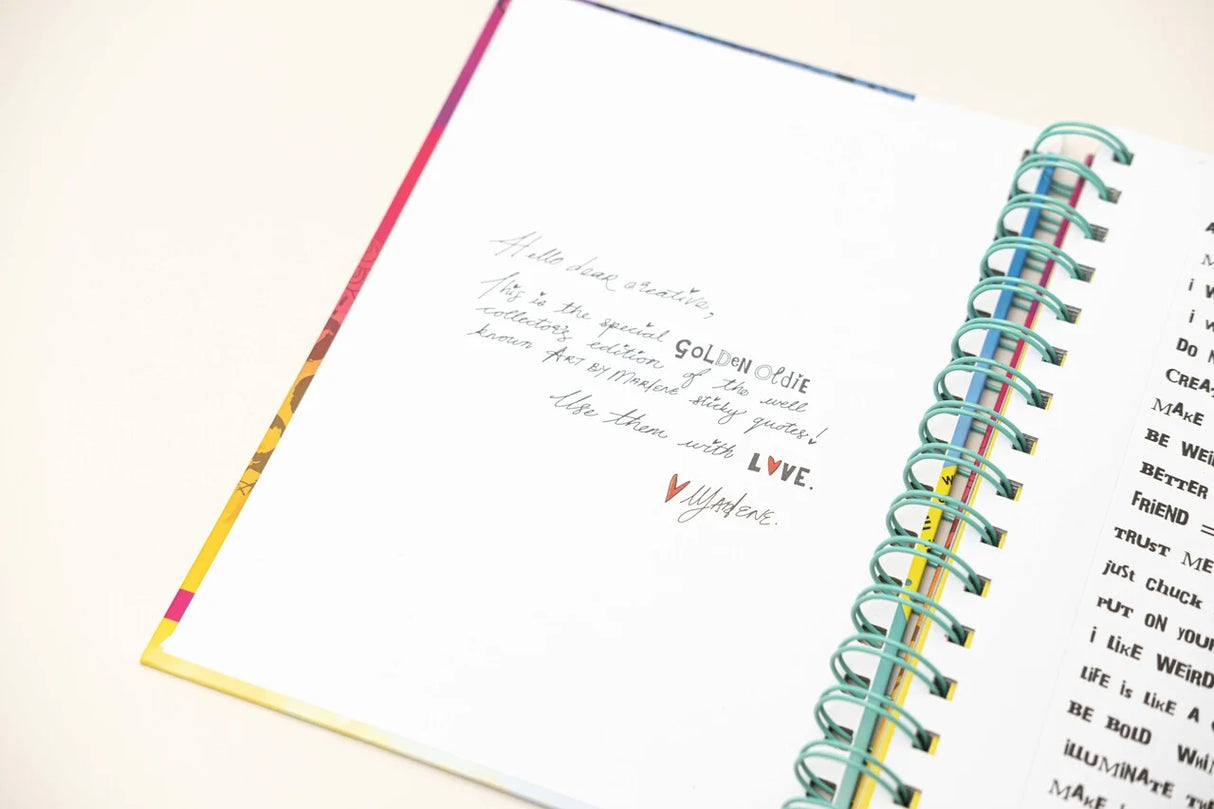 Hello dear creative,
This is the special GOLDEN OLDIE
collector's edition of the well
known ART BY MARLENE sticky quotes!
Use them with LOVE.
MARLENE.
i W
i w
DO N
CREAT
MAKE
BE WEIRD
BETTER
FRiEND =
TRUST ME
just chuck
PUT ON YOUR
i LiKE WEiRD
LiFE is LiKE A
BE BOLD WHiN
iLLUMiNATE
MAKE